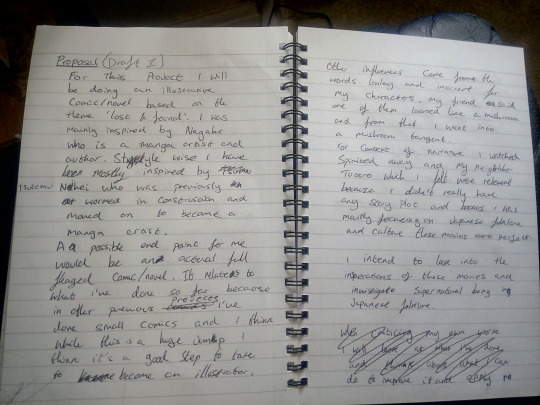 Proposal (Draft 1)
For This Project I will
be doing an illustrative
Comic/novel based on the
theme 'lost & found'. I was
mainly inspired by Nagabe
who is a manga artist and
author. Style wise I have
been mostly inspired by
Tsutomu Nihei who was previously
worked in Construcion and
moved on to become a
manga artist.
A possible end point for me
would be an actual full
fleaged Comic/novel. It relates to
what i've done so far because
in other previous projects I've
done small comics and I think
while this is a huge Jump I
think it's a good Step to take
to become an illustrator.
Other influences Come from the
words lonley and inocent for
my characters, my friend said
one of them looked like a mushroom
and from that I went into
a mushroom tangent.
For Context of narrative I watched
Spirited away and my neighbor
Totoro which I felt were relevent
because I didn't really have
any Story plot and I was
mainly focusing on Japanese folklore
and culture these movies were perfect.
I intend to look into the
inspirations of these movies and
investigate Supernatural being in
Japanese folklore.
When my own work
I will look at what I've done
and think about what I can
do to improve it